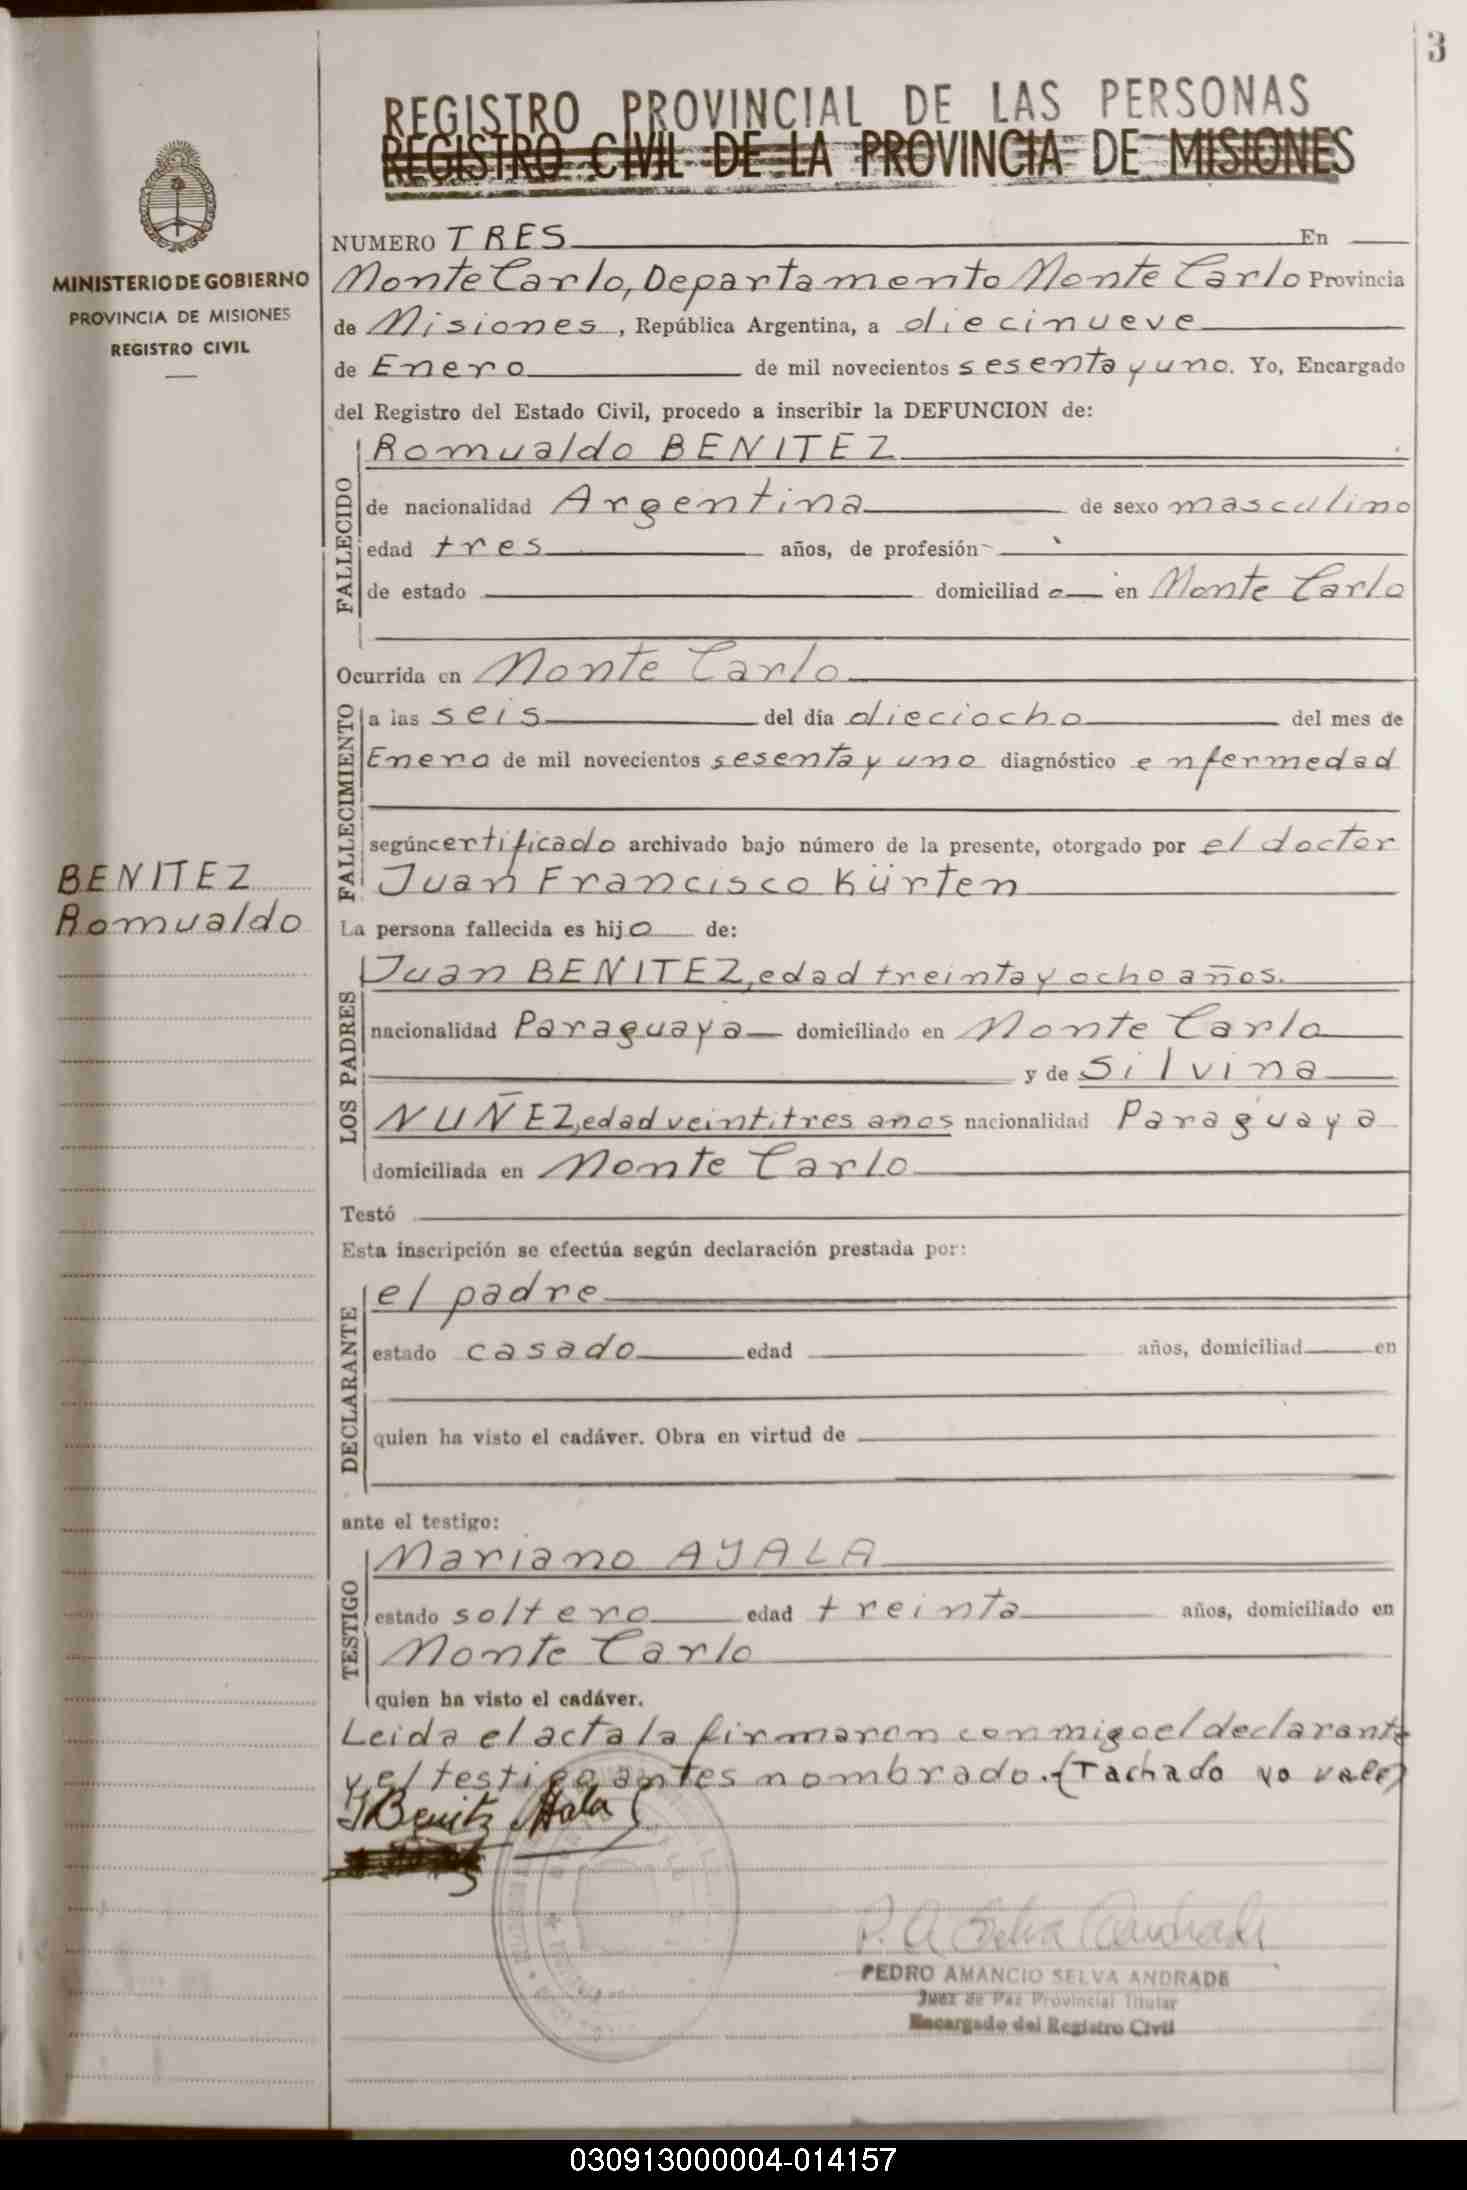 3
REGISTRO PROVINCIAL DE LAS PERSONAS
REGISTRO CIVIL DE LA PROVINCIA DE MISIONES
MINISTERIO DE GOBIERNO
PROVINCIA DE MISIONES
REGISTRO CIVIL
BENITEZ
Romualdo
NUMERO TRES En
Monte Carlo, Departamento Monte Carlo Provincia
de Misiones, República Argentina, a diecinueve
de Enero de mil novecientos sesenta y uno. Yo, Encargado
del Registro del Estado Civil, procedo a inscribir la DEFUNCION de:
FALLECIDO
Romualdo BENITEZ
de nacionalidad Argentina de sexo masculino
edad tres años, de profesión
de estado domiciliado en Monte Carlo
Ocurrida en Monte Carlo
FALLECIMIENTO
a las seis del día dieciocho del mes de
Enero de mil novecientos sesenta y uno diagnóstico enfermedad
según certificado archivado bajo número de la presente, otorgado por el doctor
Juan Francisco Kürten
La persona fallecida es hijo de:
LOS PADRES
Juan BENITEZ, edad treinta y ocho años.
nacionalidad Paraguaya domiciliado en Monte Carlo
y de Silvina
NUÑEZ, edad veintitres anos nacionalidad Paraguaya
domiciliada en Monte Carlo
Testó
Esta inscripción se efectúa según declaración prestada por:
DECLARANTE
el padre
estado casado edad años, domiciliad en
quien ha visto el cadáver. Obra en virtud de
ante el testigo:
TESTIGO
Mariano AYALA
estado soltero edad treinta años, domiciliado en
Monte Carlo
quien ha visto el cadáver.
Leida el acta la firmaron conmigo el declarante
y el testigo antes nombrado. (Tachado no vale)
J Benitz Ayala
P. A. Selva Andrade
PEDRO AMANCIO SELVA ANDRADE
Juez de Paz Provincial Titular
Encargado del Registro Civil
030913000004-014157